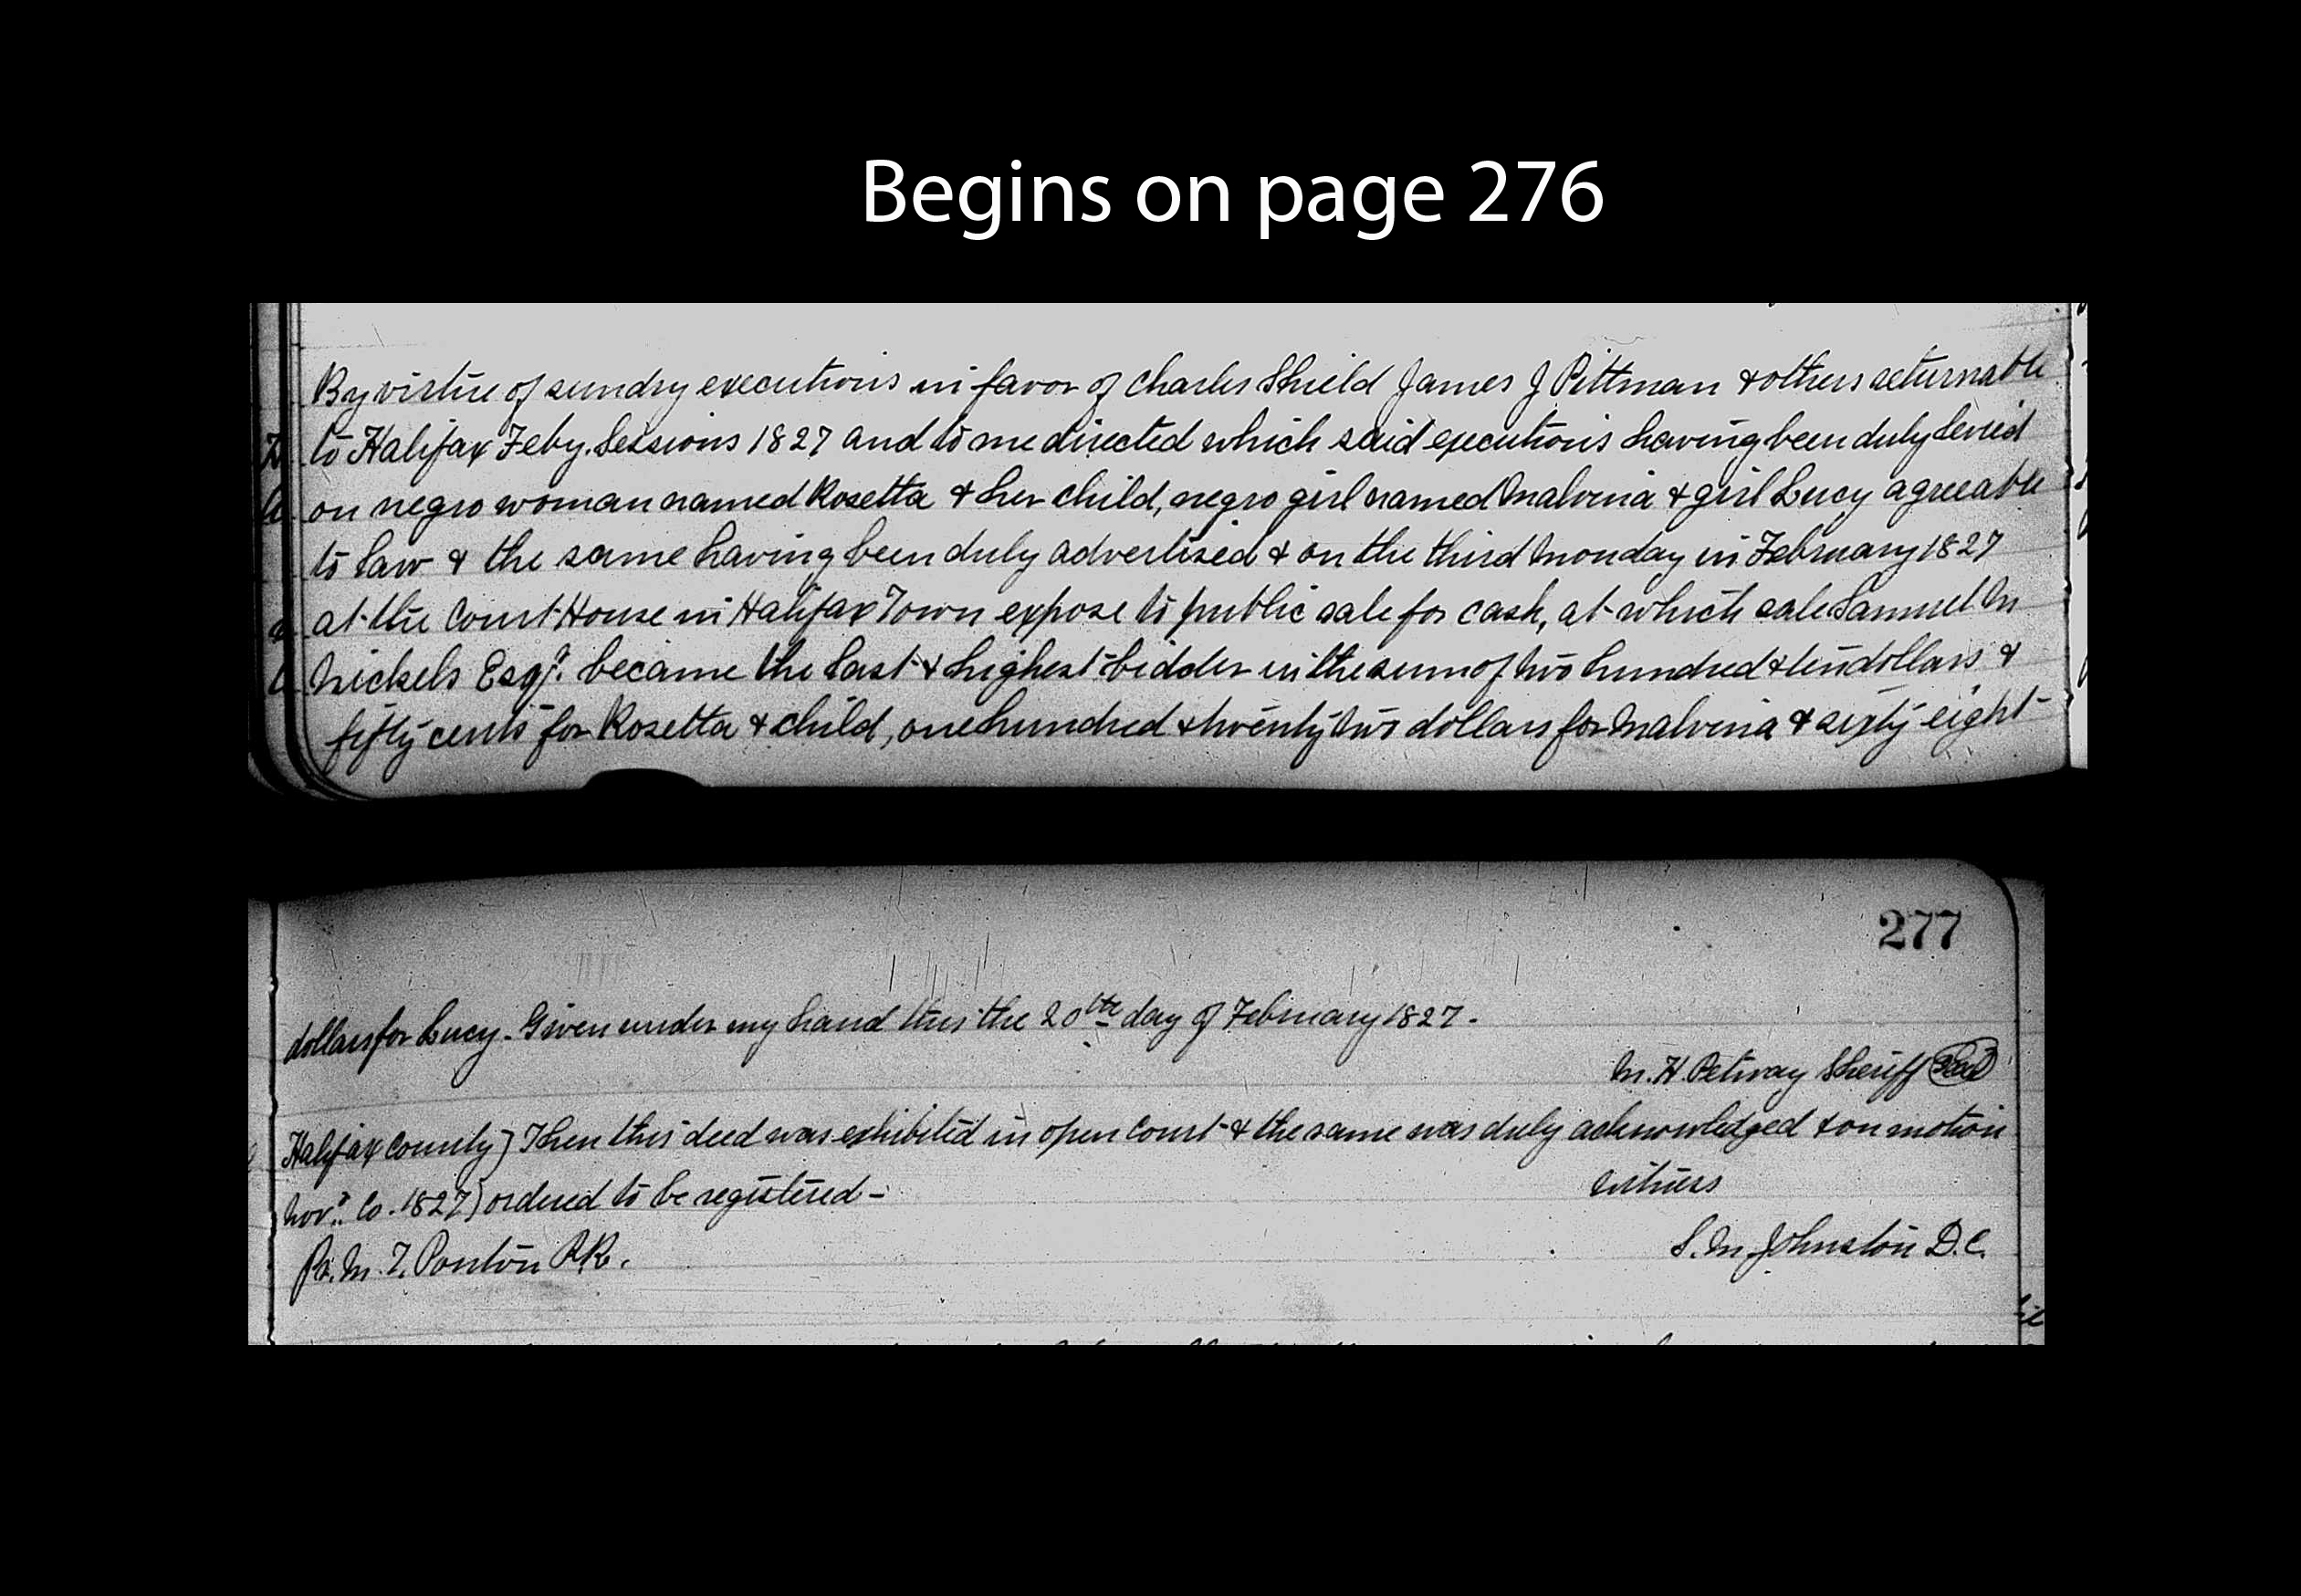 Begins on page 276
By virtue of sundry executions in favor of Charles Shield James J Pittman & others returnable
to Halifax Feby. Sessions 1827 and to me directed which said executions having been duly levied
on negro woman named Rosetta & her child, negro girl named Malvina & girl Lucy agreeable
to law & the same having been duly advertised & on the third Monday in February 1827
at the Court House in Halifax Town expose to public sale for cash, at which sale Samuel M
Nickels Esqr. became the last & highest bidder in the sum of two hundred & ten dollars &
fifty cents for Rosetta & child, one hundred & twenty two dollars for Malvina & sixty eight
277
dollars for Lucy. Given under my hand this the 20th day of February 1827.
M. H. Petway Sheriff Seal
Halifax County } Then this deed was exhibited in open Court & the same was duly acknowledged & on motion
Novr. Co. 1827 } ordered to be registered -
Witness
Pr. M. T. Ponton P.R.
S. M. Johnston D.C.